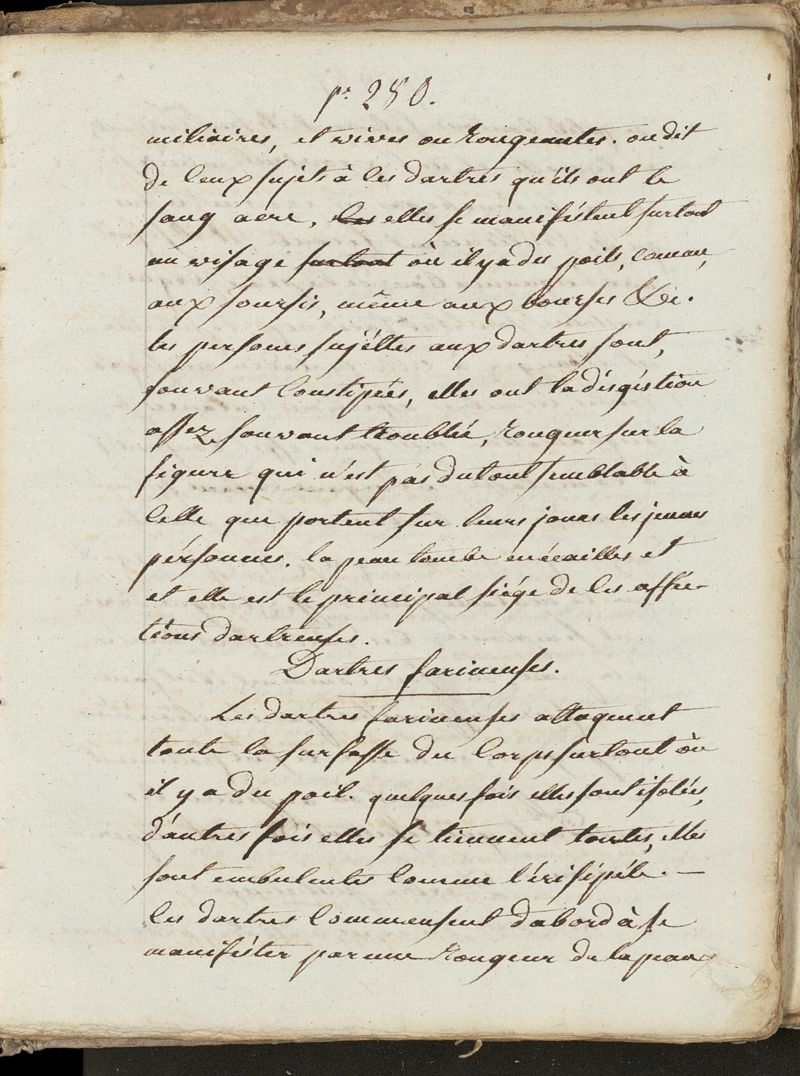 pe 280.
miliaires, et vives ou rongeantes. on dit
de ceux sujets à ces dartres qu'ils ont le
sang acre, les elles se manifestent surtout
au visage surtout où il y a du poils, comme,
aux soursis, même aux bourses &c.
les persones sujettes aux dartres sont,
souvant constipées, elles ont la désgéstion
assez souvant troublée, rougeur sur la
figure qui n'est pas du tout semblable à
celle que portent sur leurs joues les jeunes
pérsonnes. la peau tombe en écailles et
et elle est le principal siége de ces affec-
tions dartreuses.
Dartres farineuses.
Les dartres farineuses attaquent
toute la surfasse du corps surtout où
il y a du poil. quelques fois elles sont isolées,
d'autres fois elles se tiennent toutes, elles
sont embulentes comme l'érisipéle. —
les dartres commensent d'abord à se
maniféster par une rougeur de la peau